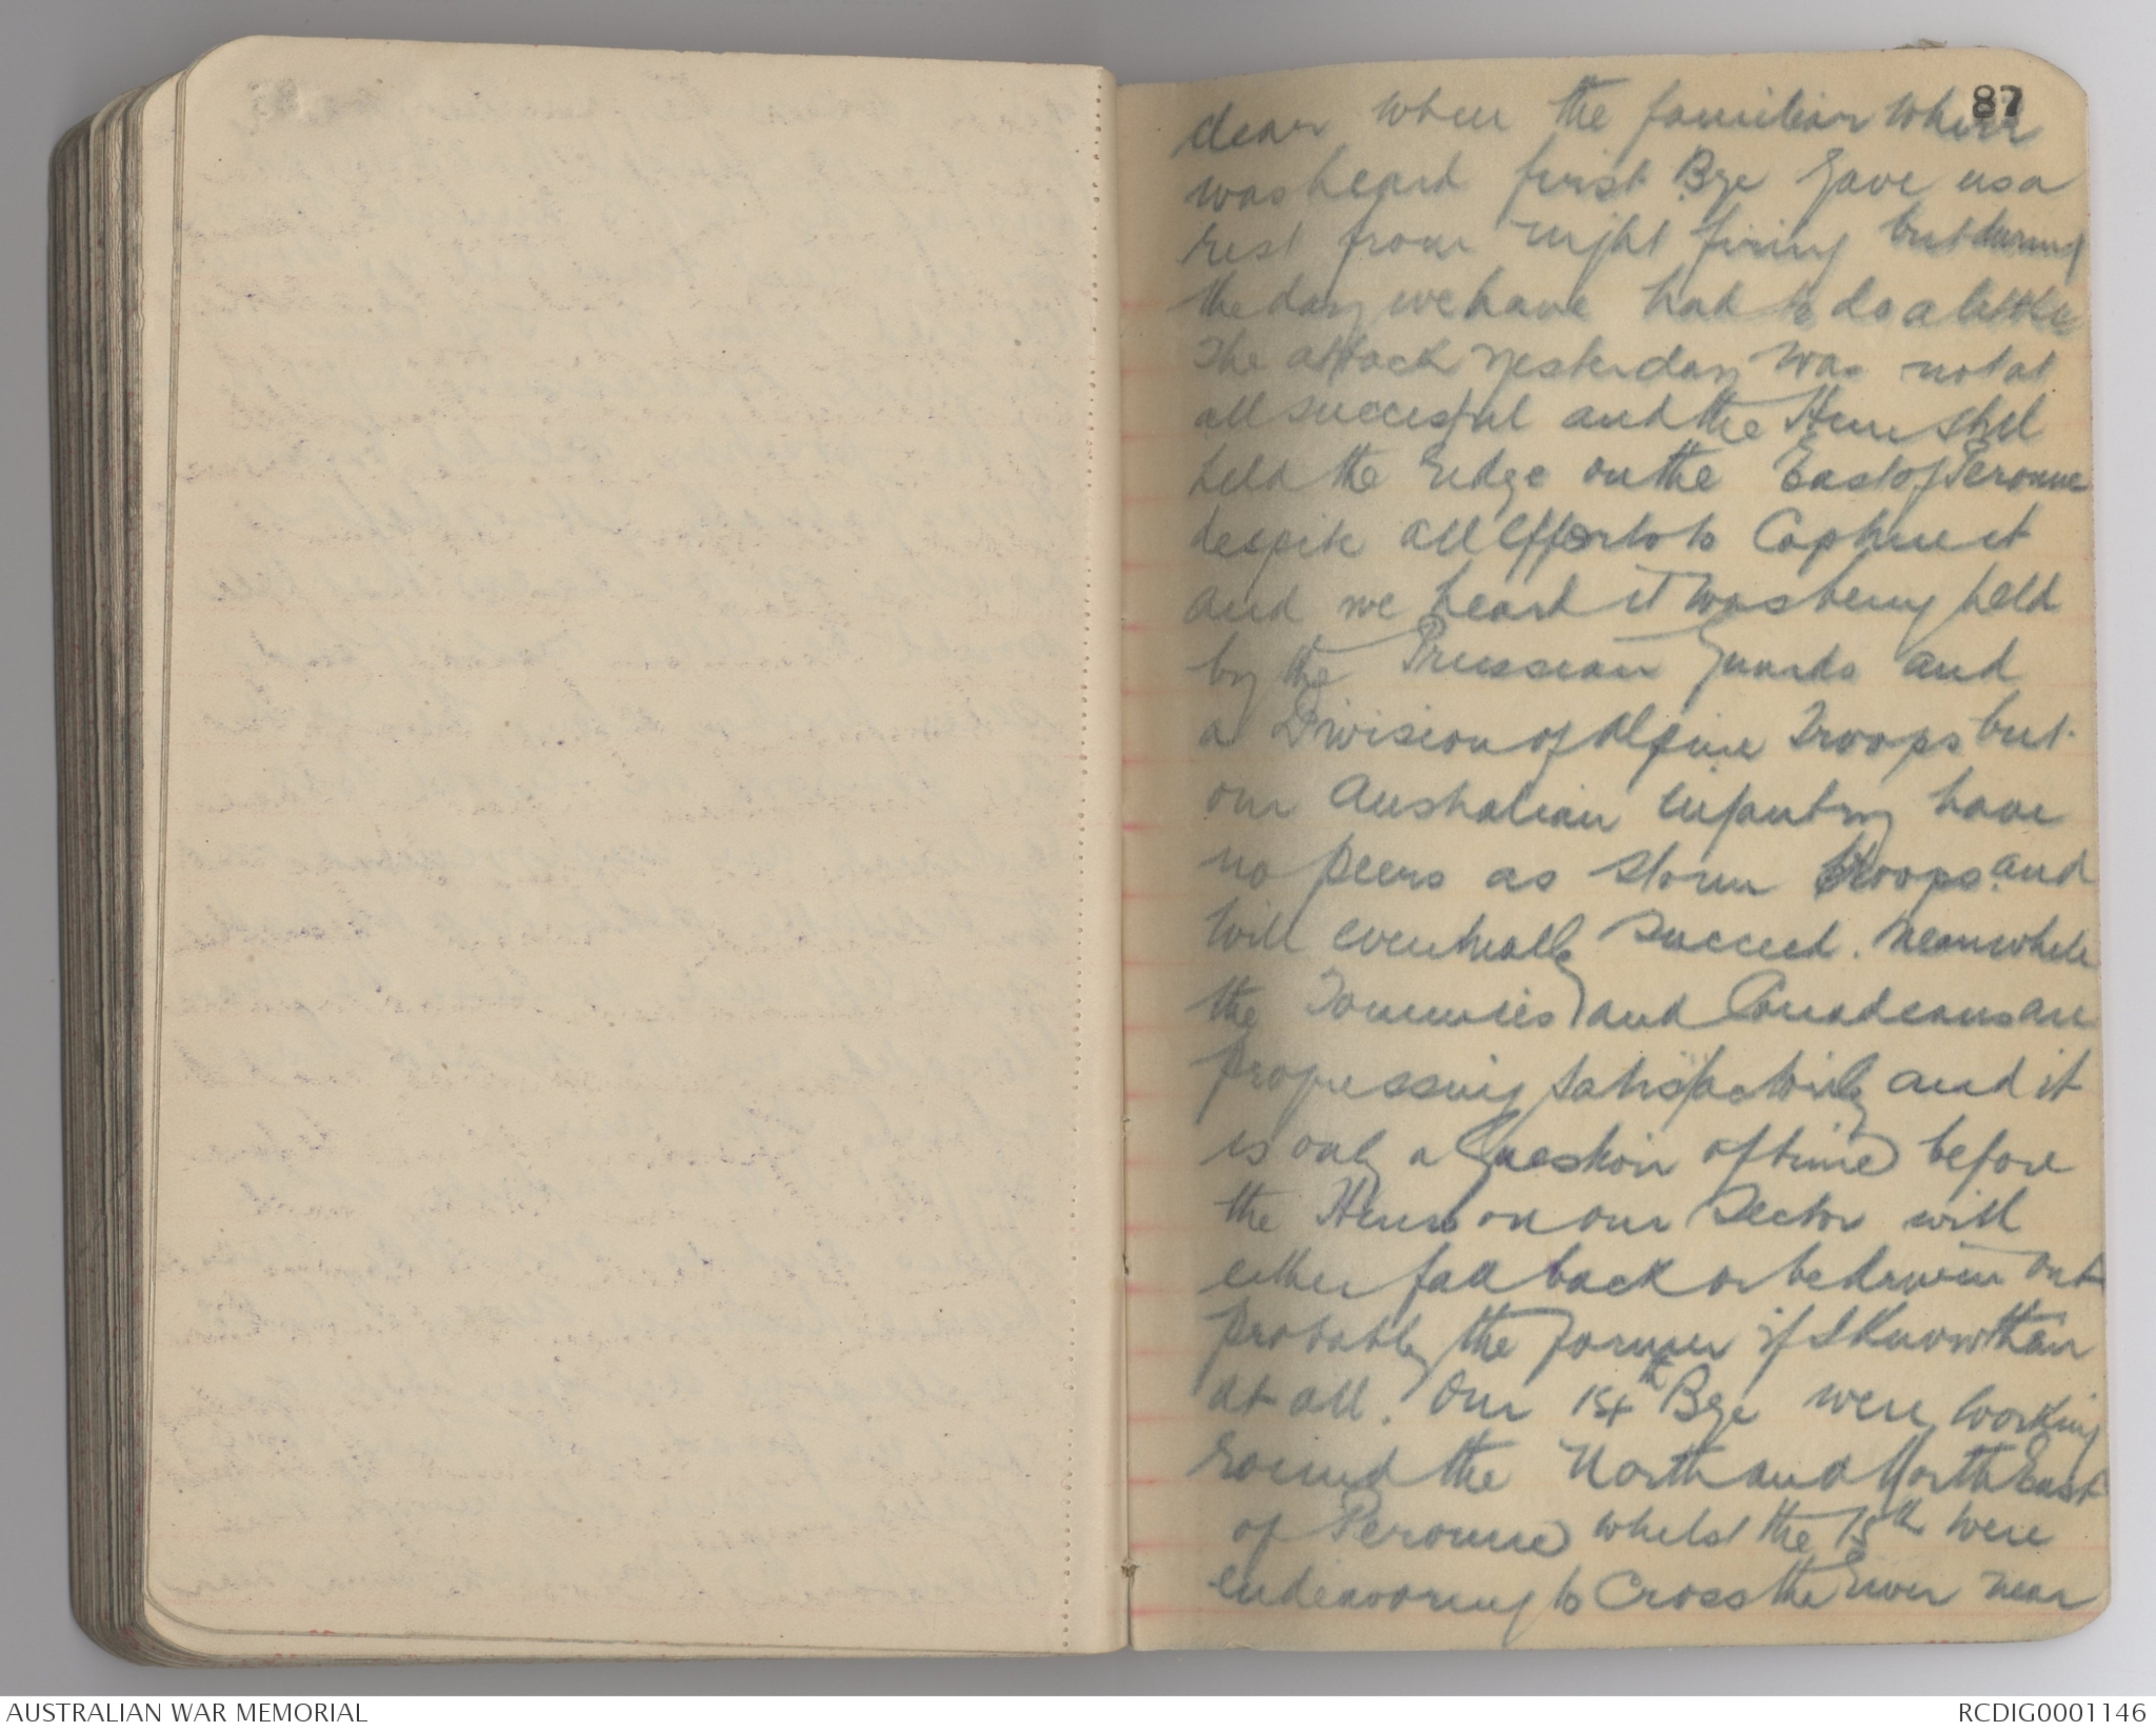 87
dear when the familiar whirr
was heard first Bge gave us a
rest from night firing but during
the day we have had to do a little
The attack yesterday was not at
all succesful and the Huns still
held the ridge on the East of Peronne
despite all efforts to capture it
and we heard it was being held
by the Prussian Guards and
a Division of Alpine Troops but
our Australian infantry have
no peers as storm troops and
will eventually succeed. Meanwhile
the Tommies and Canadians are
progressing satisfactorily and it
is only a question of time before
the Huns on our Sector will
either fall back or be driven out
probably the former if I know them
at all. Our 14th Bge were working
round the North and North East
of Peronne whilst the 15th were
endeavoring to cross the river near
AUSTRALIAN WAR MEMORIAL
RCDIG0001146